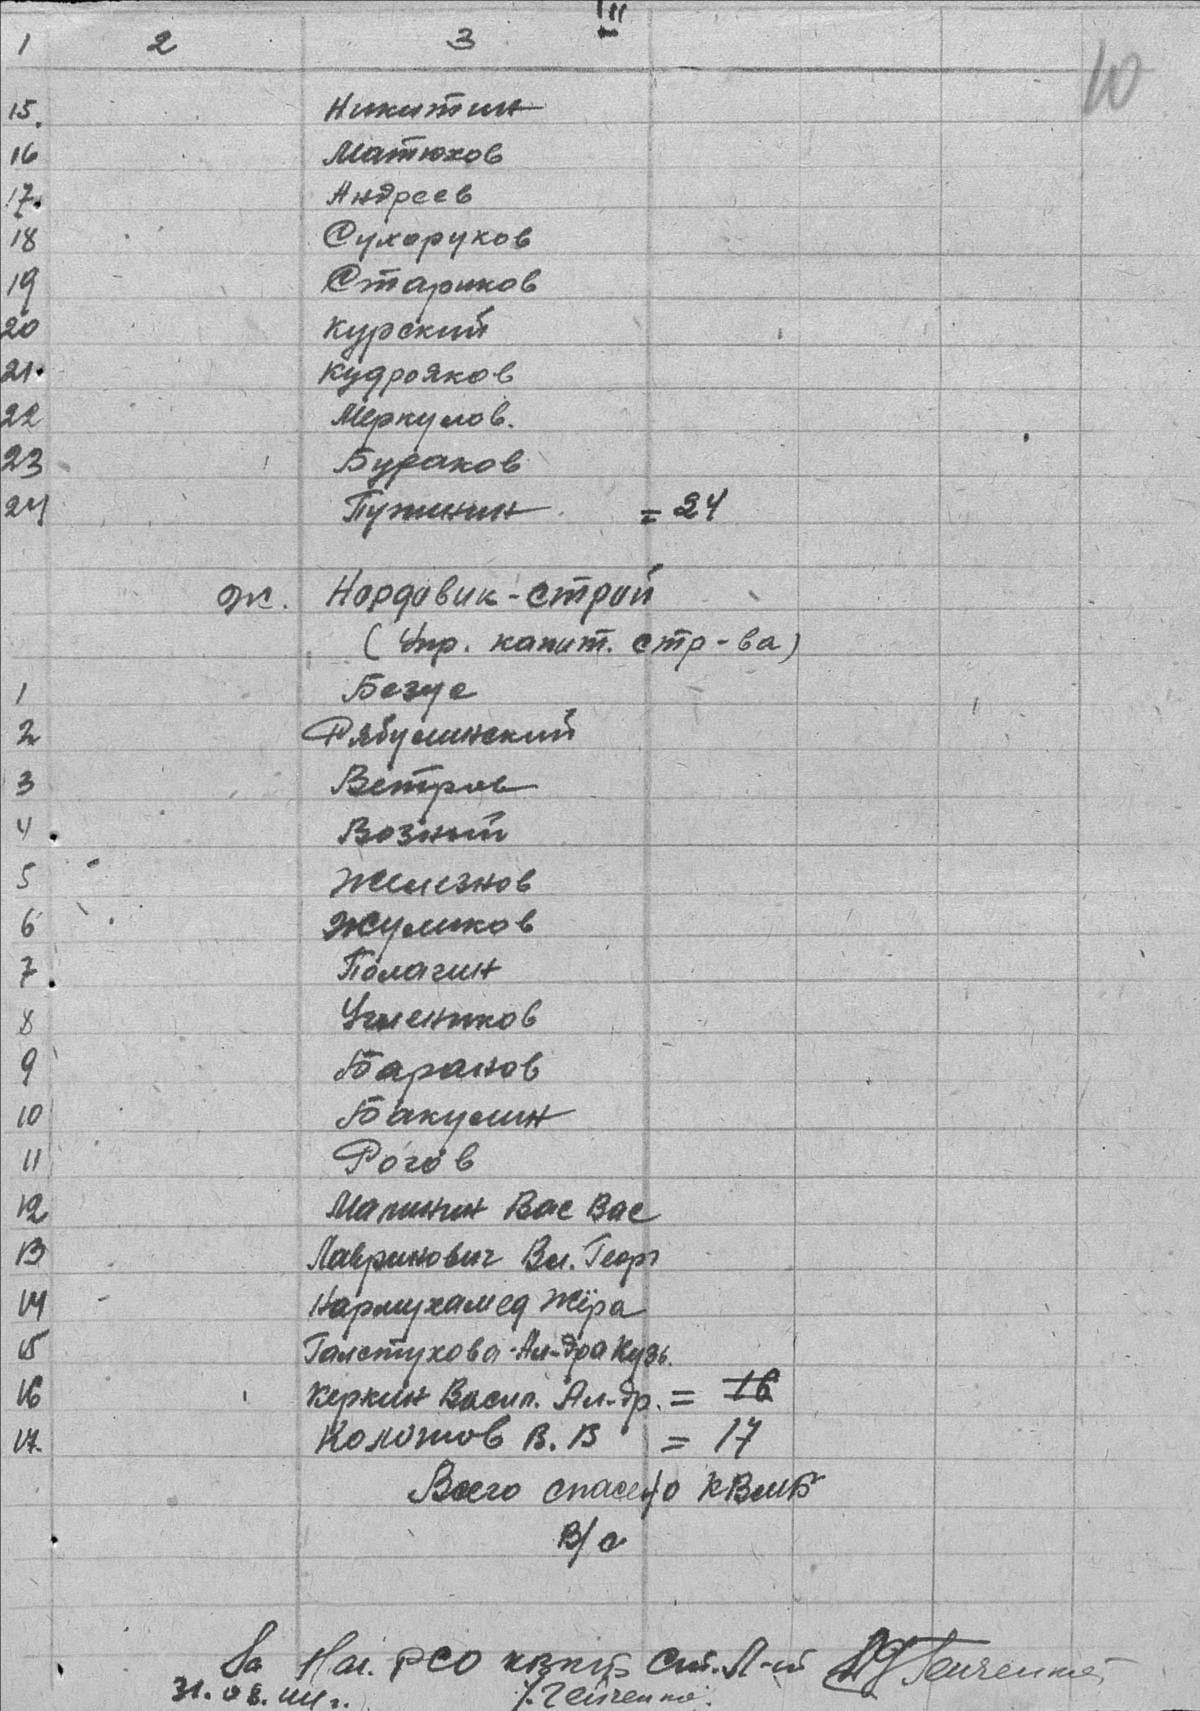 III
1 2 3
10
15. Никитин
16 Матюхов
17. Андреев
18 Сухоруков
19 Стариков
20 Курский
21. Кудрояков
22 Меркулов.
23 Бураков
24 Пужинин = 24
Ж. Нордовик-строй
(Упр. капит. стр-ва)
1 Безус
2 Рябулинский
3 Ветров
4 Возный
5 Железнов
6 Жуликов
7 Полагин
8
9 Баранов
10 Бакулин
11 Рогов
12 Малинин Вас Вас
13 Лавринович Вл. Георг
14 Нармухамед Жёра
15 Галстухова Ал-дра Кузь.
16 Керкин Васил. Ал-др. = 16
17. Колотов В. В = 17
Всего спасено КВМБ
В/с
За Нач. РСО КВМБ Ст. Л-т
31.08.44г.